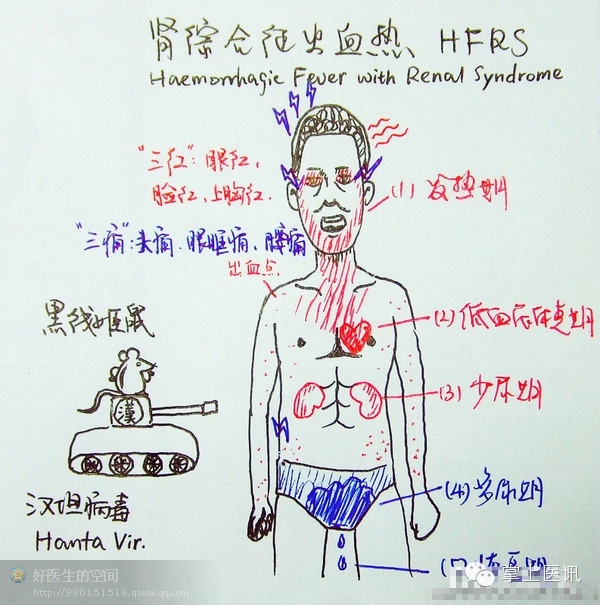 肾综合征出血热 HFRS
Haemorrhagic Fever with Renal Syndrome
"三红": 眼红,
脸红, 上胸红.
(1) 发热期
"三痛": 头痛、眼眶痛、腰痛
出血点
(2) 低血压休克期
黑线姬鼠
(3) 少尿期
漢
(4) 多尿期
汉坦病毒
Hanta Vir.
好医生的空间
http://980151516.qzone.qq.com
掌上医讯